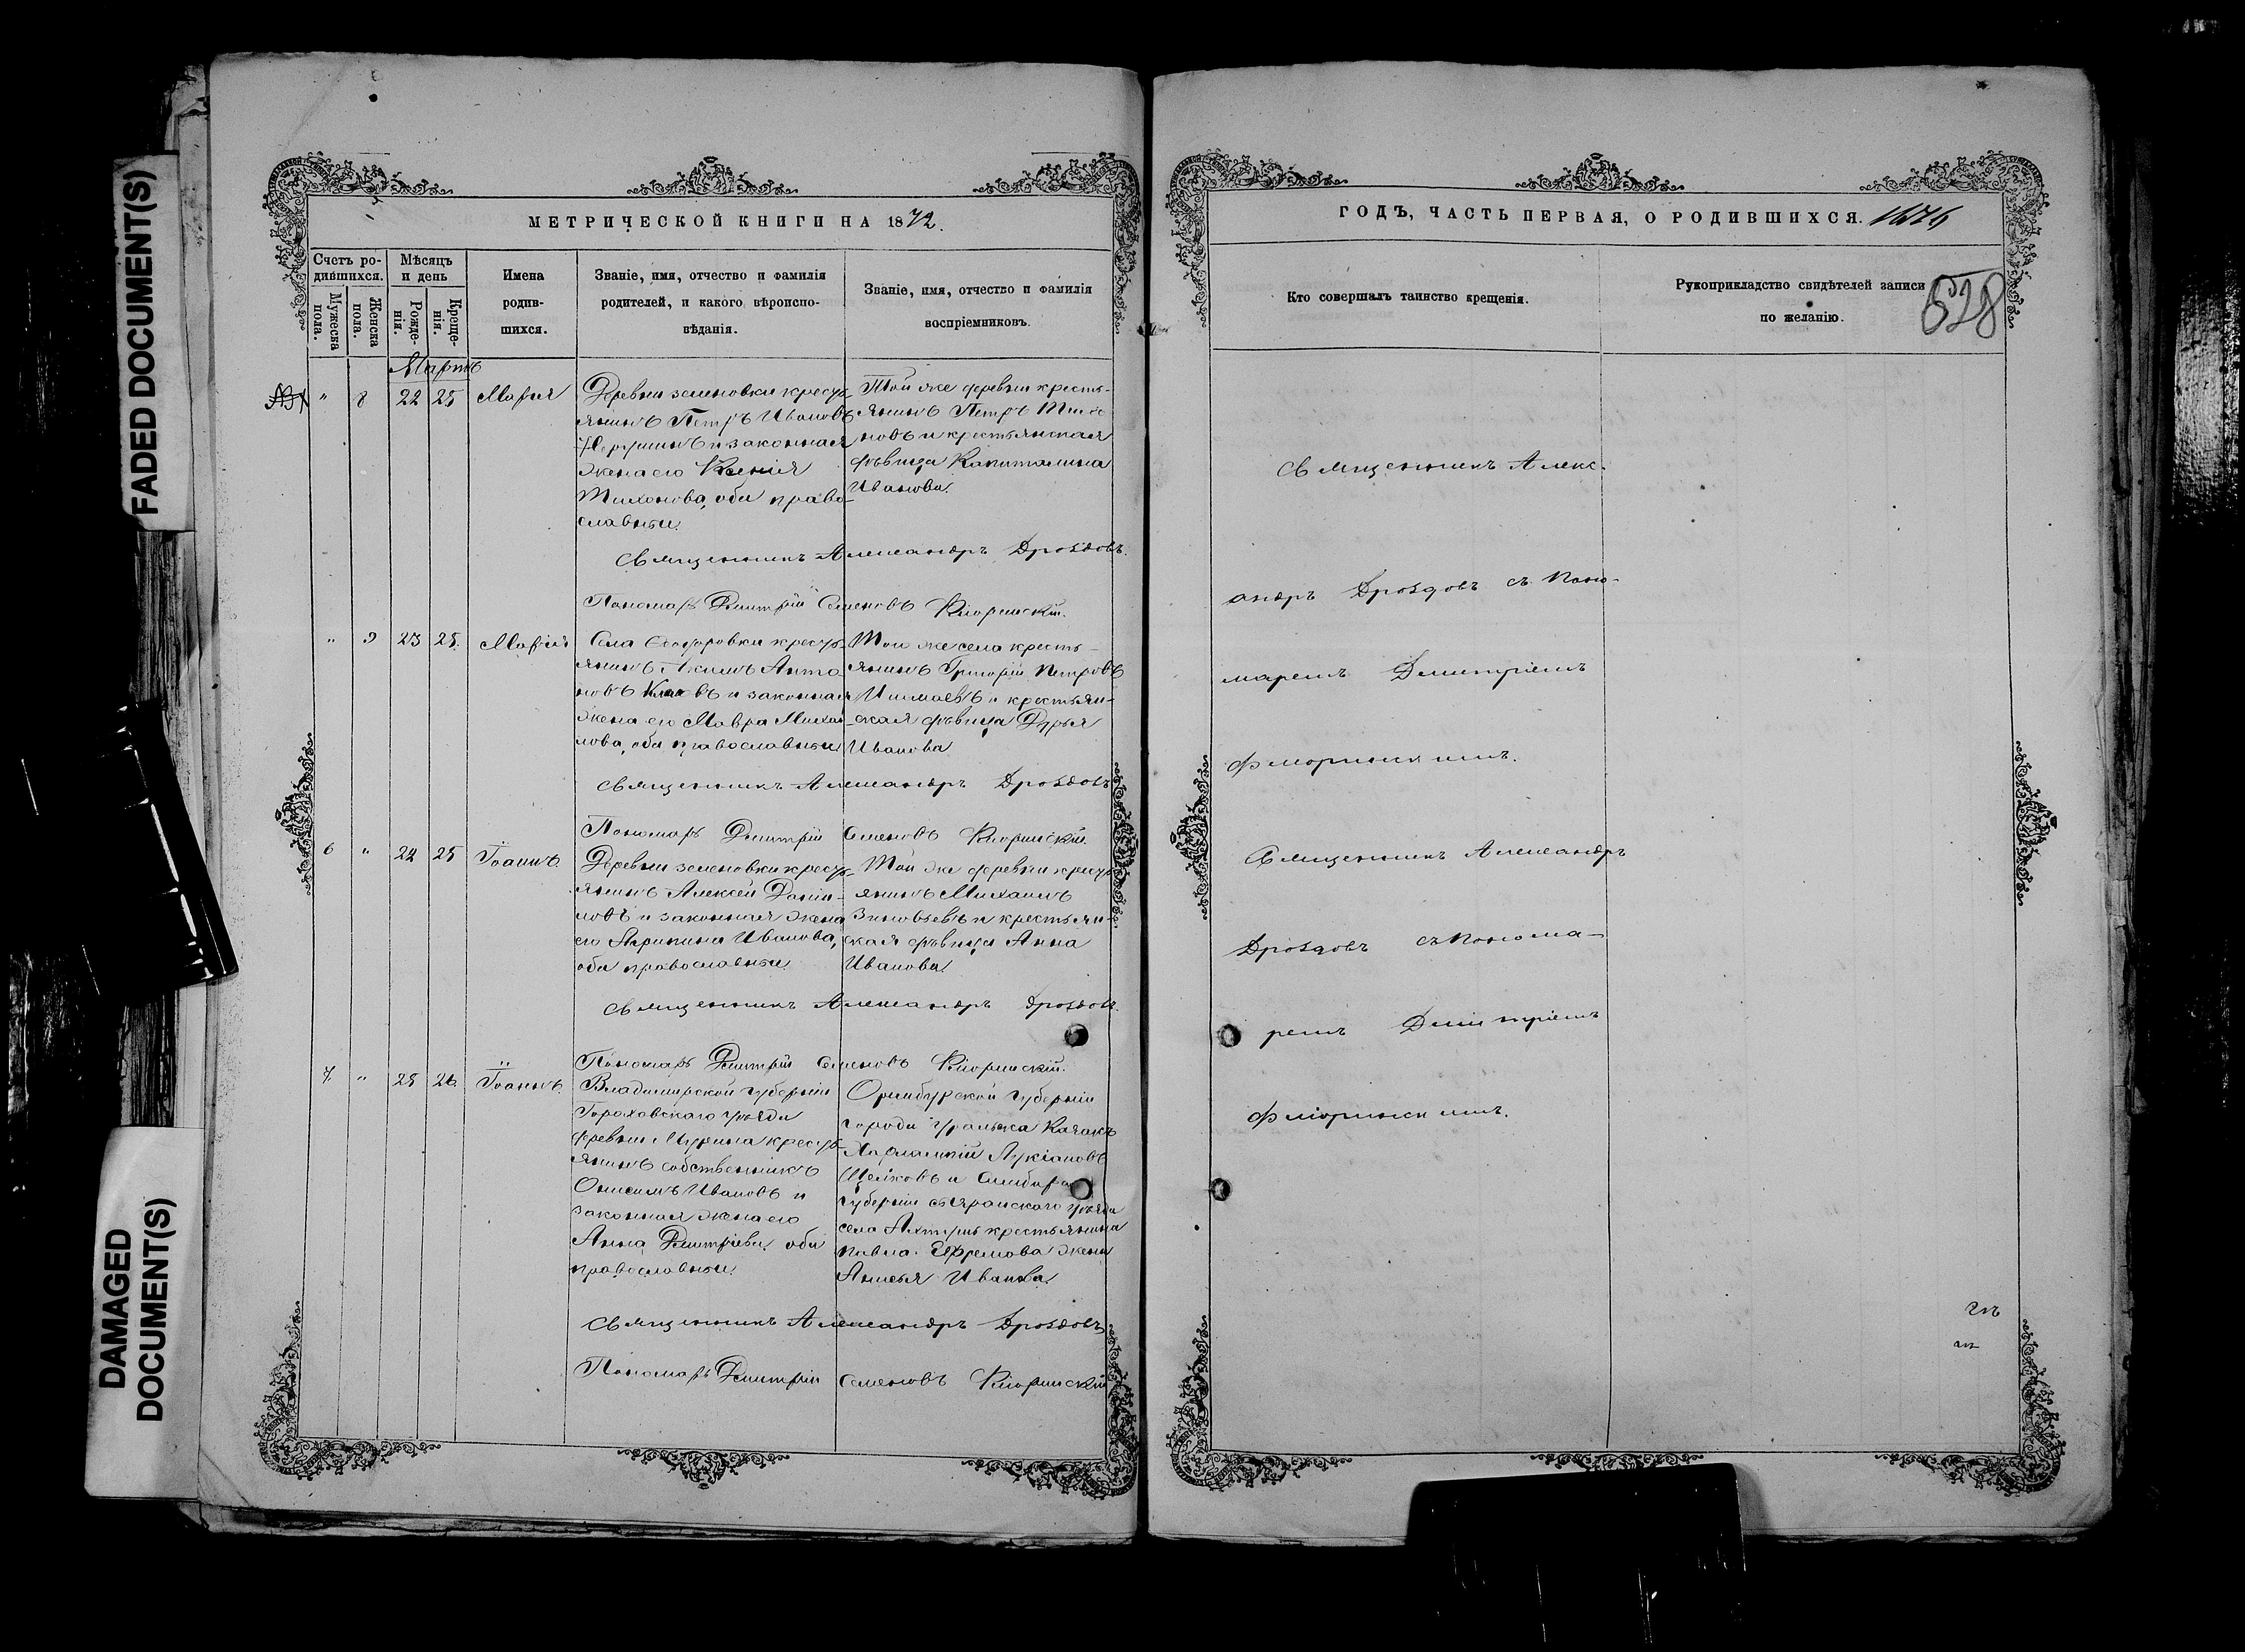 FADED DOCUMENT(S)
DAMAGED
DOCUMENT(S)
МЕТРИЧЕСКОЙ КНИГИ НА 1872.
Счетъ ро-
дившихся.
Мужеска
пола.
Женска
пола.
Мѣсяцъ
и день
Рожде-
нія.
Креще-
нія.
Имена
родив-
шихся.
Званіе, имя, отчество и фамилія
родителей, и какого вѣроиспо-
вѣданія.
Званіе, имя, отчество и фамилія
воспріемниковъ.
Мартъ
" 8 22 25 Марія
Деревни зеленовки кресть-
янинъ Петръ Ивановъ
и законная
жена его Ксенія
Тихонова, оба право-
славные.
Той же деревни кресть-
янинъ Петръ
новъ и крестьянская
дѣвица Капиталина
Иванова.
Священникъ Александръ Дроздовъ.
Пономарь Дмитрій Семеновъ Флоринскій.
" 9 23 25. Марія
Села Ѳедоровки кресть-
янинъ Акимъ Анто
новъ и законная
жена его Мавра Михаи
лова, оба православные
Того же села кресть-
янинъ Григорій Петровъ
и крестьян-
ская дѣвица Дарья
Иванова
Священникъ Александръ Дроздовъ
Пономарь Дмитрій Семеновъ Флоринскій.
6 " 24 25 Іоаннъ
Деревни зеленовки кресть-
янинъ Алексѣй Данiи-
ловъ и законная жена
его Агрипина Иванова,
оба православные.
Той же деревни кресть-
янинъ Михаилъ
Зиновьевъ и крестьян-
ская дѣвица Анна
Иванова.
Священникъ Александръ Дроздовъ.
Пономарь Дмитрій Семеновъ Флоринскій.
7. " 25 26 Іоаннъ.
Владимирской губерніи
Гороховскаго уѣзда
деревни кресть-
янинъ собственникъ
Онисимъ Ивановъ и
законная жена его
Анна Дмитріева, оба
православные.
Оринбурской губерніи
города Уральска Казакъ
Харлампій Лукіановъ
и Симбирс
губерніи сызранскаго уѣзда
села крестьянина
Павла Ефремова жена
Анисья Иванова.
Священникъ Александръ Дроздовъ
Пономарь Дмитрій Семеновъ Флоринскій
ГОДЪ, ЧАСТЬ ПЕРВАЯ, О РОДИВШИХСЯ.
528
Кто совершалъ таинство крещенія.
Рукоприкладство свидѣтелей записи
по желанію.
Священникъ Алекс-
андръ Дроздовъ съ Поно-
маремъ Димитріемъ
Флоринскимъ.
Священникъ Александръ
Дроздовъ съ Понома-
ремъ Димитріемъ
Флоринскимъ.